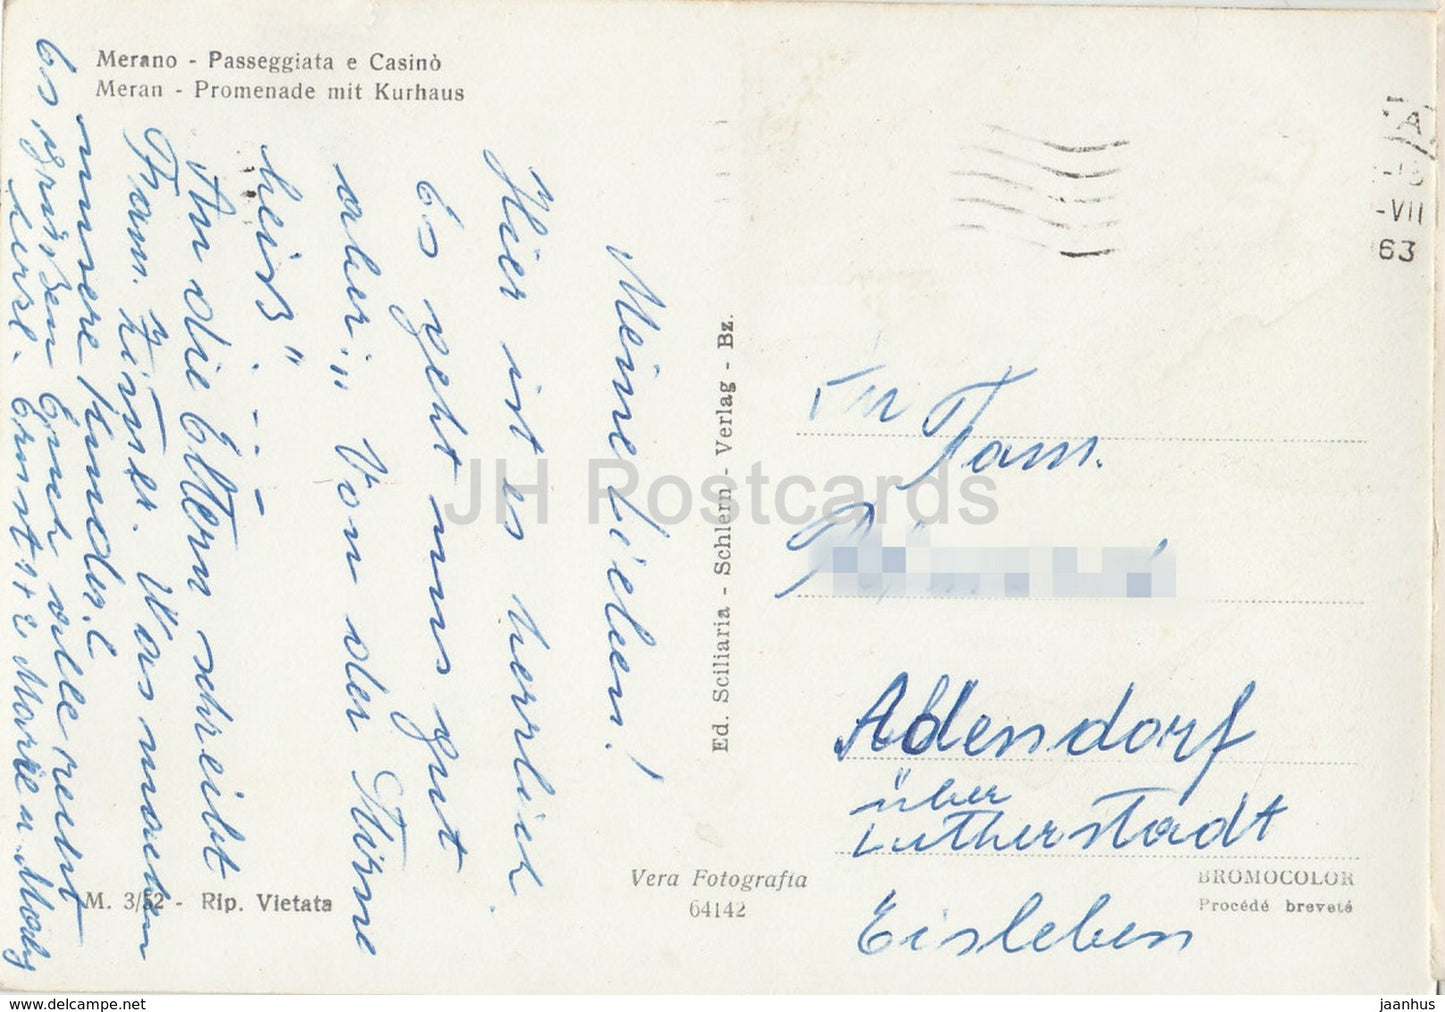 Merano - Passeggiata e Casinò
Meran - Promenade mit Kurhaus
Meine Lieben!
Hier ist es herrlich.
Es geht uns gut
aber: „Von der Stirne
heiß" . - - -
An die Eltern schreibt
Fam. Was machen
unsere Kinder?
Es grüßen Euch alle recht
Ernst
Ed. Sciliaria - Schlern - Verlag - Bz.
A
-VII
63
An Fam.
Adendorf
über
Lutherstadt
Eisleben
M. 3/52 - Rip. Vietata
Vera Fotografia
64142
BROMOCOLOR
Procédé breveté
JH Postcards
www.delcampe.net
jaanhus